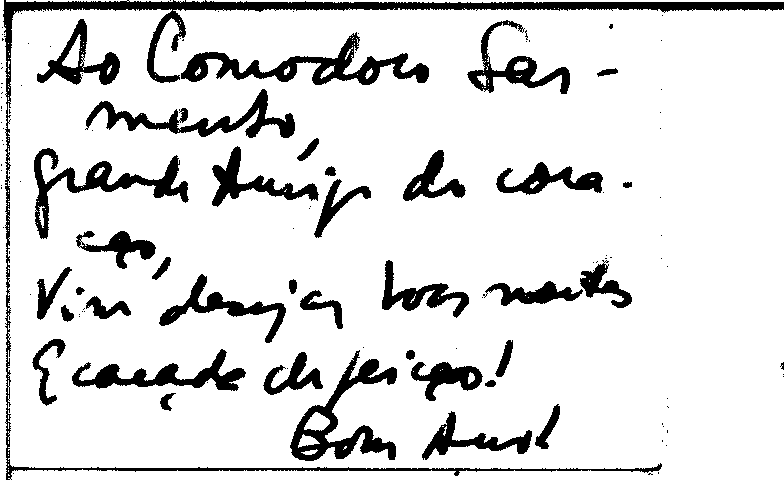 Ao Comodoro Sar-
mento,
grande Amigo do cora-
ção,
Vim desejar boas noites
E caçada de feição!
Bom